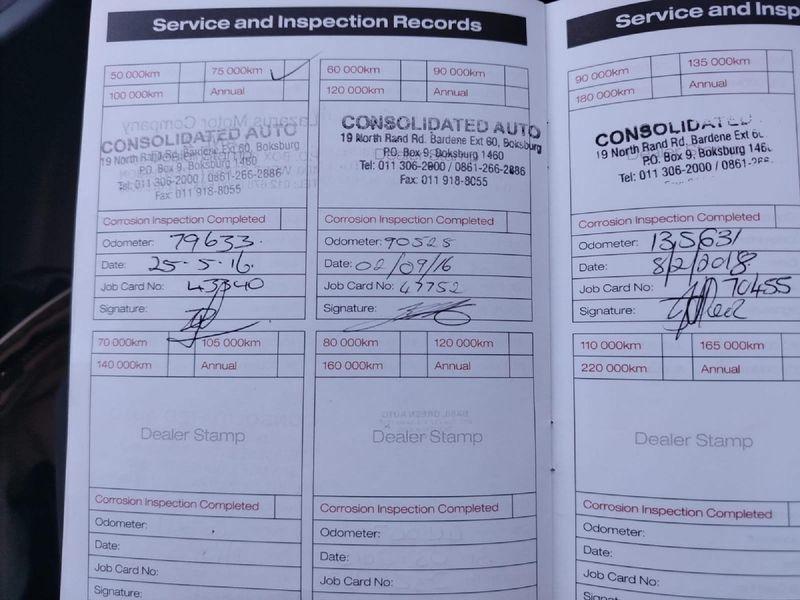 Service and Inspection Records
50 000km 75 000km ✓
100 000km Annual
Lazarus Motor Company
CONSOLIDATED AUTO
19 North Rand Rd. Bardene Ext 60, Boksburg
P.O. Box 9, Boksburg 1460
Tel: 011 306-2000 / 0861-266-2886
Fax: 011 918-8055
Corrosion Inspection Completed
Odometer: 79633.
Date: 25-5-16.
Job Card No: 43340
Signature:
70 000km 105 000km
140 000km Annual
Dealer Stamp
Corrosion Inspection Completed
Odometer:
Date:
Job Card No:
Signature:
60 000km 90 000km
120 000km Annual
CONSOLIDATED AUTO
19 North Rand Rd. Bardene Ext 60, Boksburg
P.O. Box 9, Boksburg 1460
Tel: 011 306-2000 / 0861-266-2886
Fax: 011 918-8055
Corrosion Inspection Completed
Odometer: 90528
Date: 02/09/16
Job Card No: 47752
Signature:
80 000km 120 000km
160 000km Annual
BASIL GREEN AUTO
Dealer Stamp
Corrosion Inspection Completed
Odometer:
Date:
Job Card No:
Service and Insp
90 000km 135 000km
180 000km Annual
CONSOLIDATED
19 North Rand Rd. Bardene Ext 60
P.O. Box 9, Boksburg 146
Tel: 011 306-2000 / 0861-266
Corrosion Inspection Completed
Odometer: 135631
Date: 8/2/2018
Job Card No: 70455
Signature:
110 000km 165 000km
220 000km Annual
Dealer Stamp
Corrosion Inspection Completed
Odometer:
Date:
Job Card No: